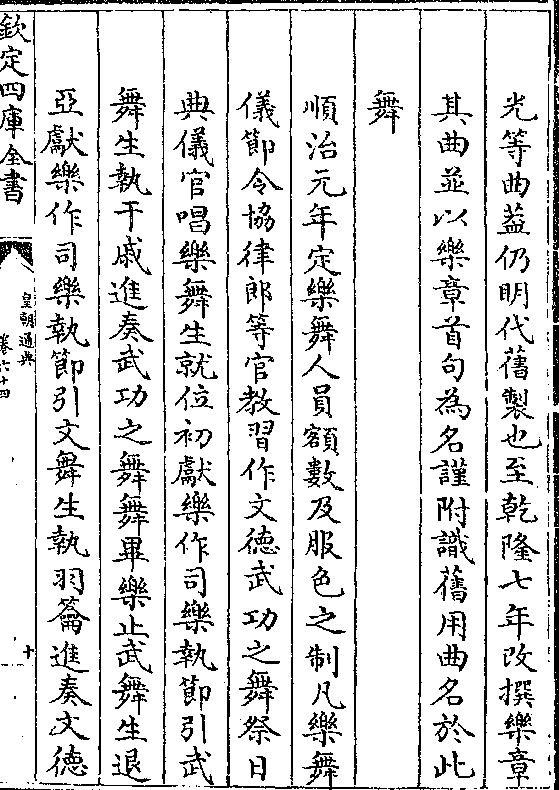 光等曲葢仍明代舊製也至乾隆七年改撰樂章
其曲並以樂章首句為名謹附識舊用曲名於此
舞
順治元年定樂舞人員額數及服色之制凡樂舞
儀節令協律郎等官教習作文德武功之舞祭日
典儀官唱樂舞生就位初獻樂作司樂執節引武
舞生執干戚進奏武功之舞舞畢樂止武舞生退
亞獻樂作司樂執節引文舞生執羽籥進奏文德
欽定四庫全書
皇朝通典
卷六十四
十